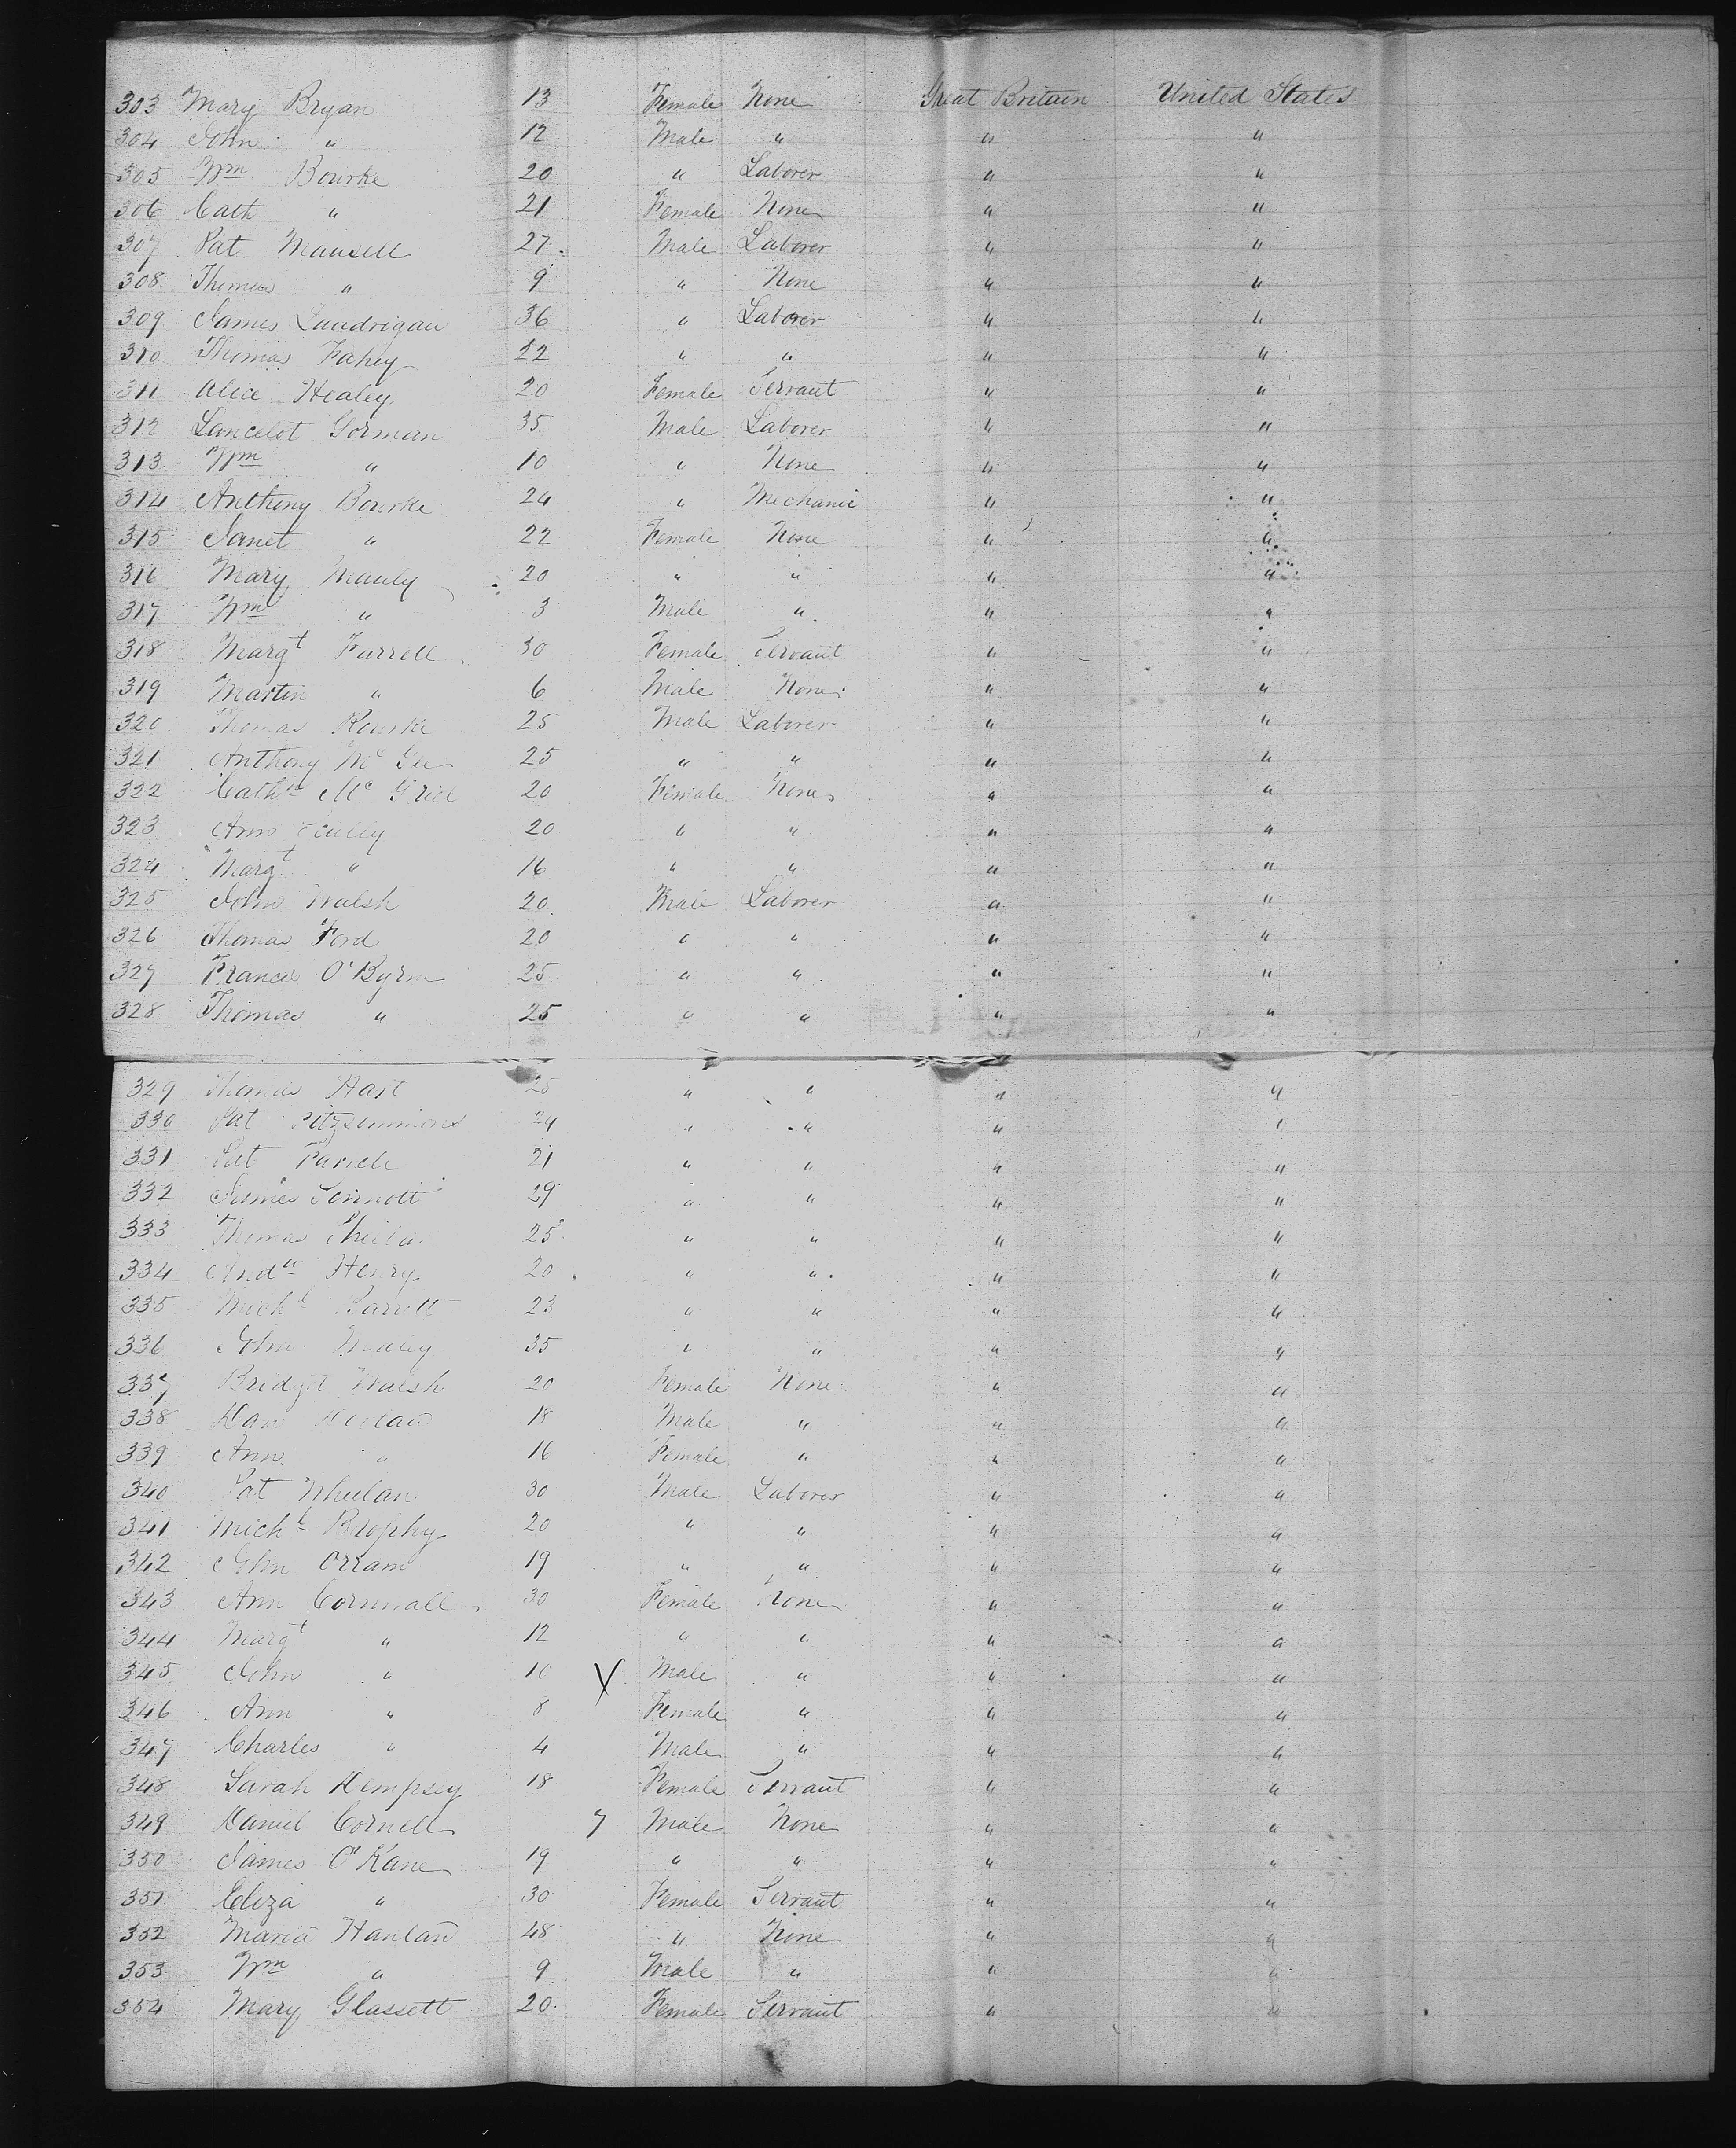 303 Mary Bryan 13 Female None Great Britain United States
304 John " 12 Male " " "
305 Wm Bourke 20 " Laborer " "
306 Cath " 21 Female None " "
307 Pat Mansell 27 Male Laborer " "
308 Thomas " 9 " None " "
309 James Landrigan 36 " Laborer " "
310 Thomas Fahey 22 " " " "
311 Alice Healey 20 Female Servant " "
312 Lancelot Gorman 35 Male Laborer " "
313 Wm " 10 " None " "
314 Anthony Bourke 24 " Mechanic " "
315 Janet " 22 Female None " "
316 Mary Manly 20 " " " "
317 Wm " 3 Male " " "
318 Margt Farrell 30 Female Servant " "
319 Martin " 6 Male None " "
320 Thomas Rourke 25 Male Laborer " "
321 Anthony Mc Gee 25 " " " "
322 Cathe Mc 20 Female None " "
323 Ann 20 " " " "
324 Margt " 16 " " " "
325 John Walsh 20 Male Laborer " "
326 Thomas Ford 20 " " " "
327 Francis O'Byrn 25 " " " "
328 Thomas " 25 " " " "
329 Thomas Hart 25 " " " "
330 Pat Fitzsimmons 24 " " " "
331 Pat Farrell 21 " " " "
332 James Sinnott 29 " " " "
333 Thomas 25 " " " "
334 Andw Henry 20 " " " "
335 Michl Barrett 23 " " " "
336 John 35 " " " "
337 Bridget Walsh 20 Female None " "
338 Dan 18 Male " " "
339 Ann " 16 Female " " "
340 Pat Whelan 30 Male Laborer " "
341 Michl Brophy 20 " " " "
342 John Orram 19 " " " "
343 Ann Cornwall 30 Female None " "
344 Margt " 12 " " " "
345 John " 10 Male " " "
346 Ann " 8 Female " " "
347 Charles " 4 Male " " "
348 Sarah Dempsey 18 Female Servant " "
349 Daniel Cornell 7 Male None " "
350 James O'Kane 19 " " " "
351 Eliza " 30 Female Servant " "
352 Maria Hanlan 48 " None " "
353 Wm " 9 Male " " "
354 Mary Glassett 20 Female Servant " "